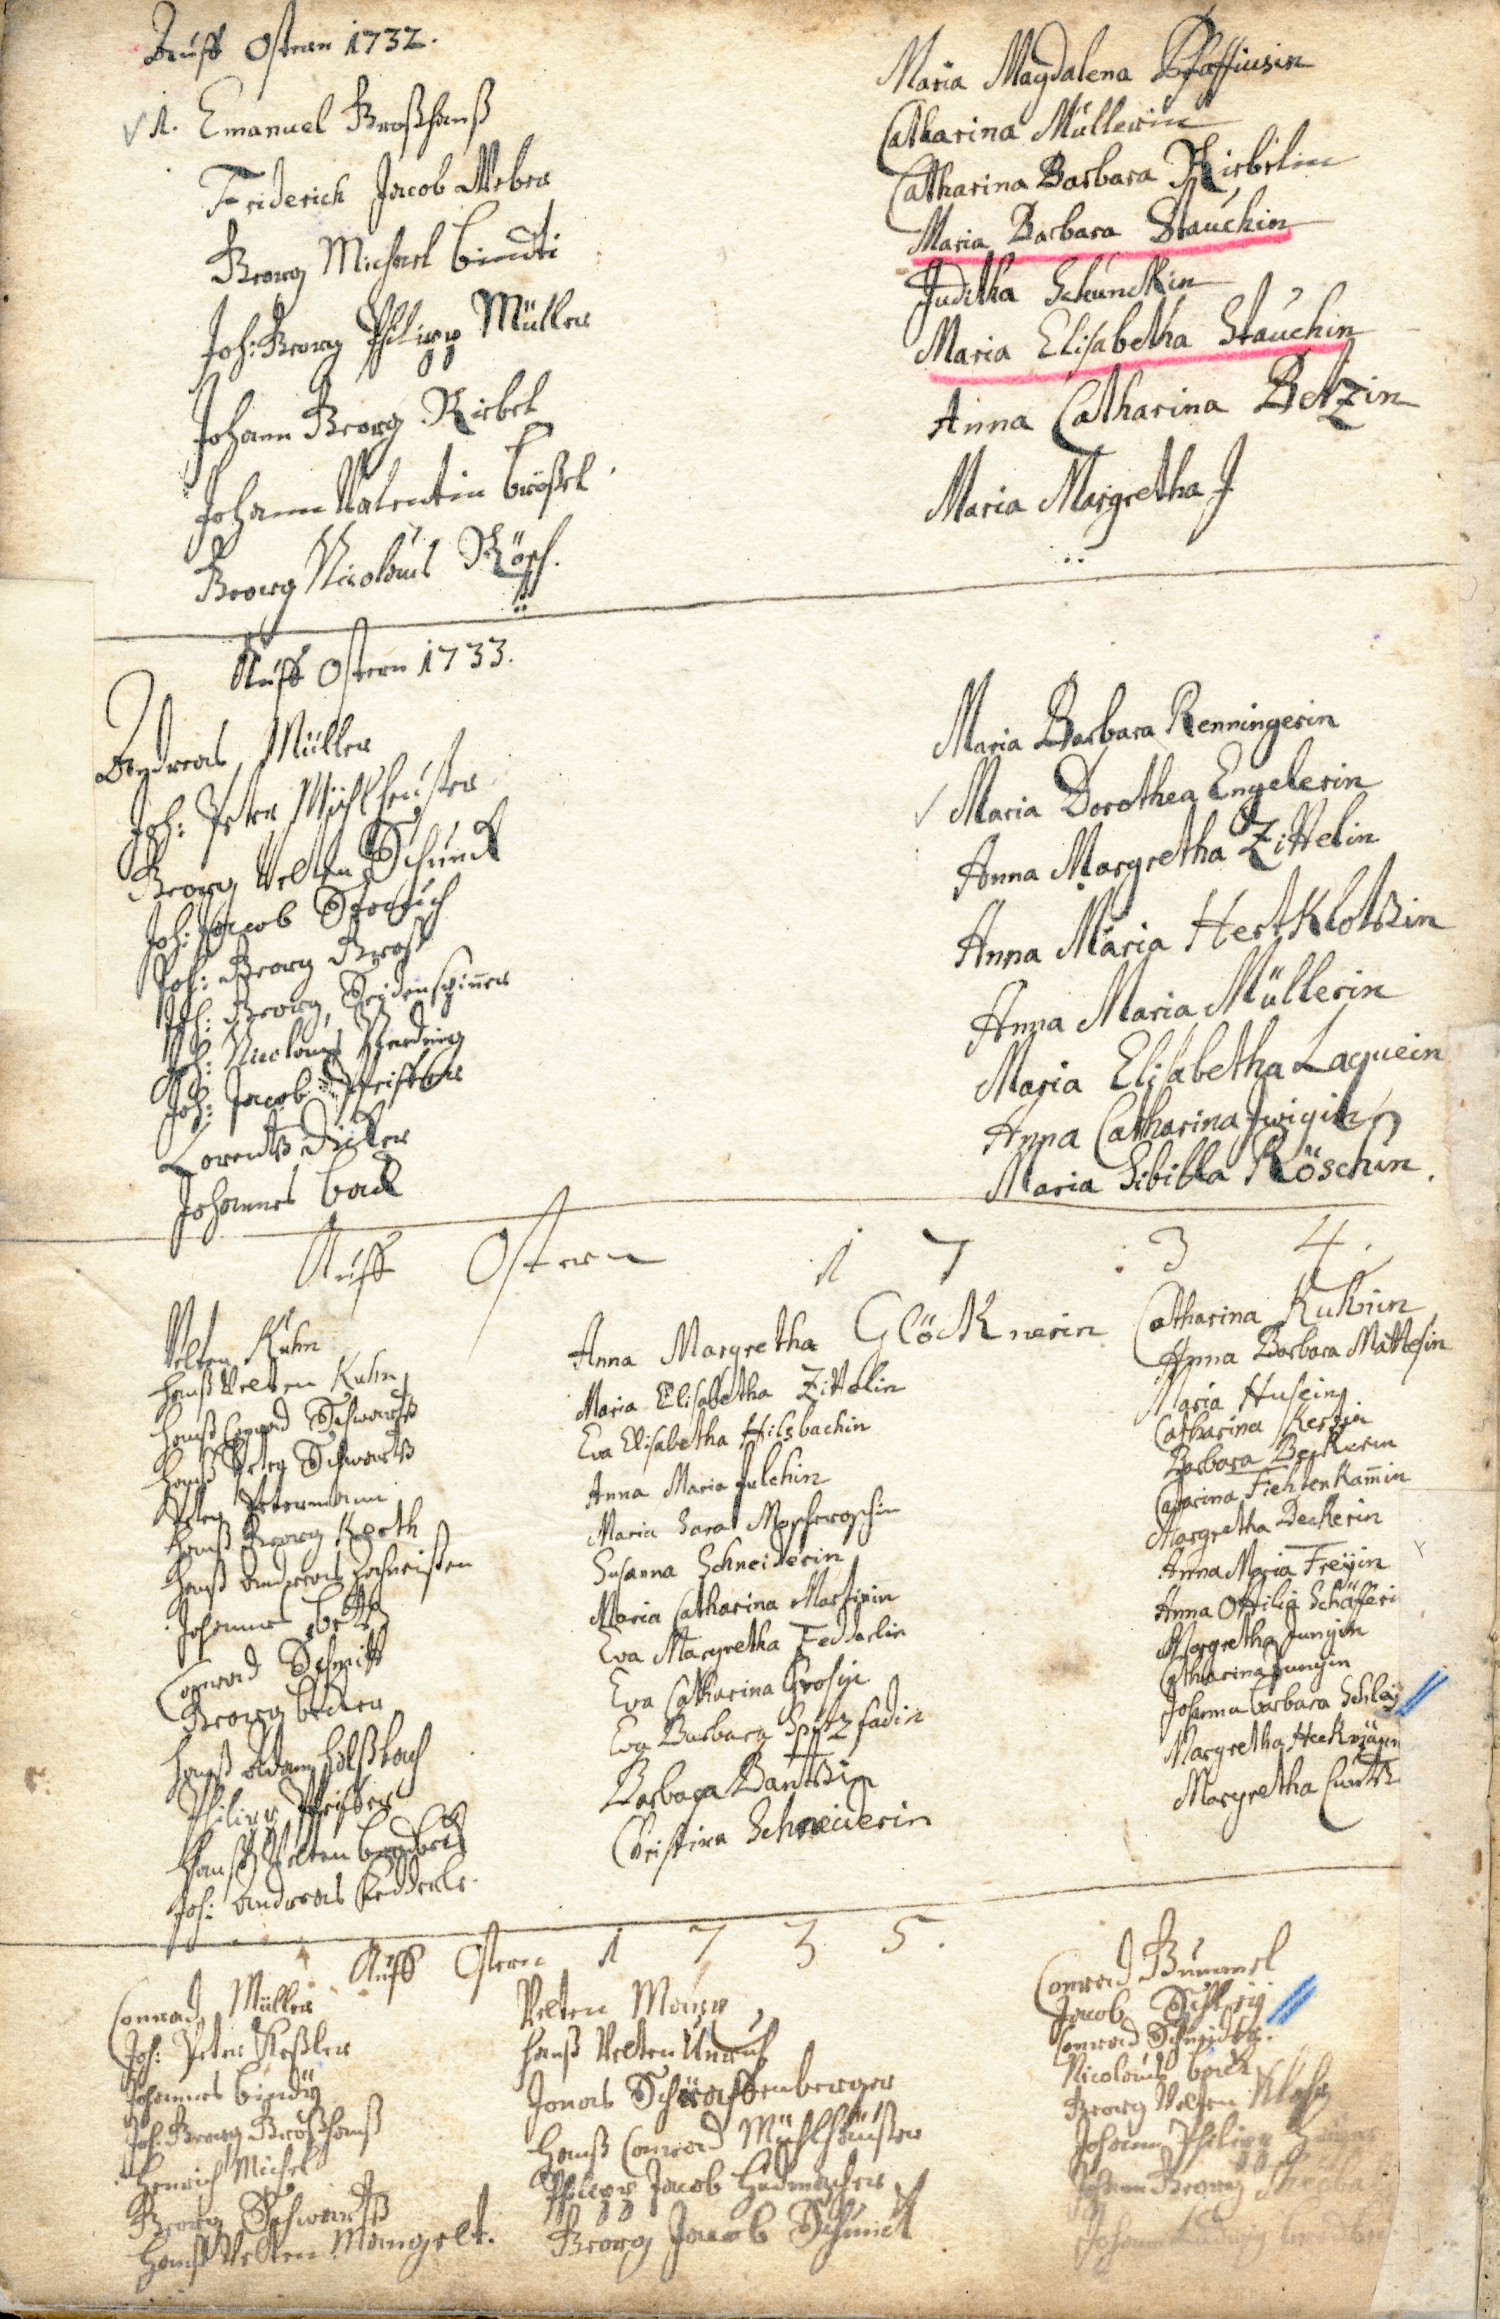 Auff Ostern 1732.
1. Emanuel Großhanß
Friderich Jacob Weber
Georg Michael Bindti
Joh: Georg Philipp Müller
Johann Georg Riebel
Johann Valentin Crößel
Georg Nicolaus Röß.
Maria Magdalena Pfaffiusin
Catharina Müllerin
Catharina Barbara Riebelin
Maria Barbara Stauchin
Juditha Schunckin
Maria Elisabetha Stauchin
Anna Catharina Betzin
Maria Margretha J
Auff Ostern 1733.
Andreas Müller
Joh: Peter Mühlheußer
Georg Velten Schunck
Joh: Jacob Strauch
Joh: Georg Groß
Joh: Georg Seidenspinner
Joh: Nicolaus
Joh: Jacob Pfeiffer
Lorentz Dicker
Johannes Beck
Maria Barbara Renningerin
Maria Dorothea Engelerin
Anna Margretha Zittelin
Anna Maria Hertklotzin
Anna Maria Müllerin
Maria Elisabetha Laquein
Anna Catharina Zweigin
Maria Sibilla Röschin.
Auff Ostern 1734.
Velten Kuhn
Hanß Velten Kuhn
Hanß Conrad Schwartz
Hanß Peter Schwartz
Peter Petermann
Hanß Georg Kerth
Hanß Andreas Hochreißen
Johannes Betz
Conrad Schmitt
Georg Becker
Hanß Adam Hilßbach
Philipp Pfeiffer
Hanß Velten
Joh: Andreas Fedderle.
Anna Margretha Glöcknerin
Maria Elisabetha Zittelin
Eva Elisabetha Hilsbachin
Anna Maria Julchin
Maria Sara Moscheroschin
Susanna Schneiderin
Maria Catharina Martinin
Eva Margretha Fedderlin
Eva Catharina Grosin
Eva Barbara Spitzfadin
Barbara Bantzin
Christina Schneiderin
Catharina Kuhnin
Anna Barbara Mattesin
Maria Husein
Catharina Kertin
Barbara Beckerin
Catarina Fichtenkam̄in
Margretha Deckerin
Anna Maria Freyin
Anna Ottilia Schäfferi
Margretha Jungin
Catharina Jungin
Johanna Barbara Schley
Margretha Heckmänn
Margretha Cuntz
Auff Ostern 1735.
Conrad Müller
Joh: Peter Keßler
Johannes Bindti
Joh: Georg Großhanß
Henrich Michel
Georg Schwartz
Hanß Velten Mangelt.
Velten Mann
Hanß Velten Unruh
Jonas Schraffenberger
Hanß Conrad Mühlhäußer
Philipp Jacob Hudmacher
Georg Jacob Schmidt
Conrad Gummel
Jacob Schleij
Conrad Schneider.
Nicolaus Beck
Georg Velten Mohr
Johann Philipp
Johann Georg
Johann Ludwig